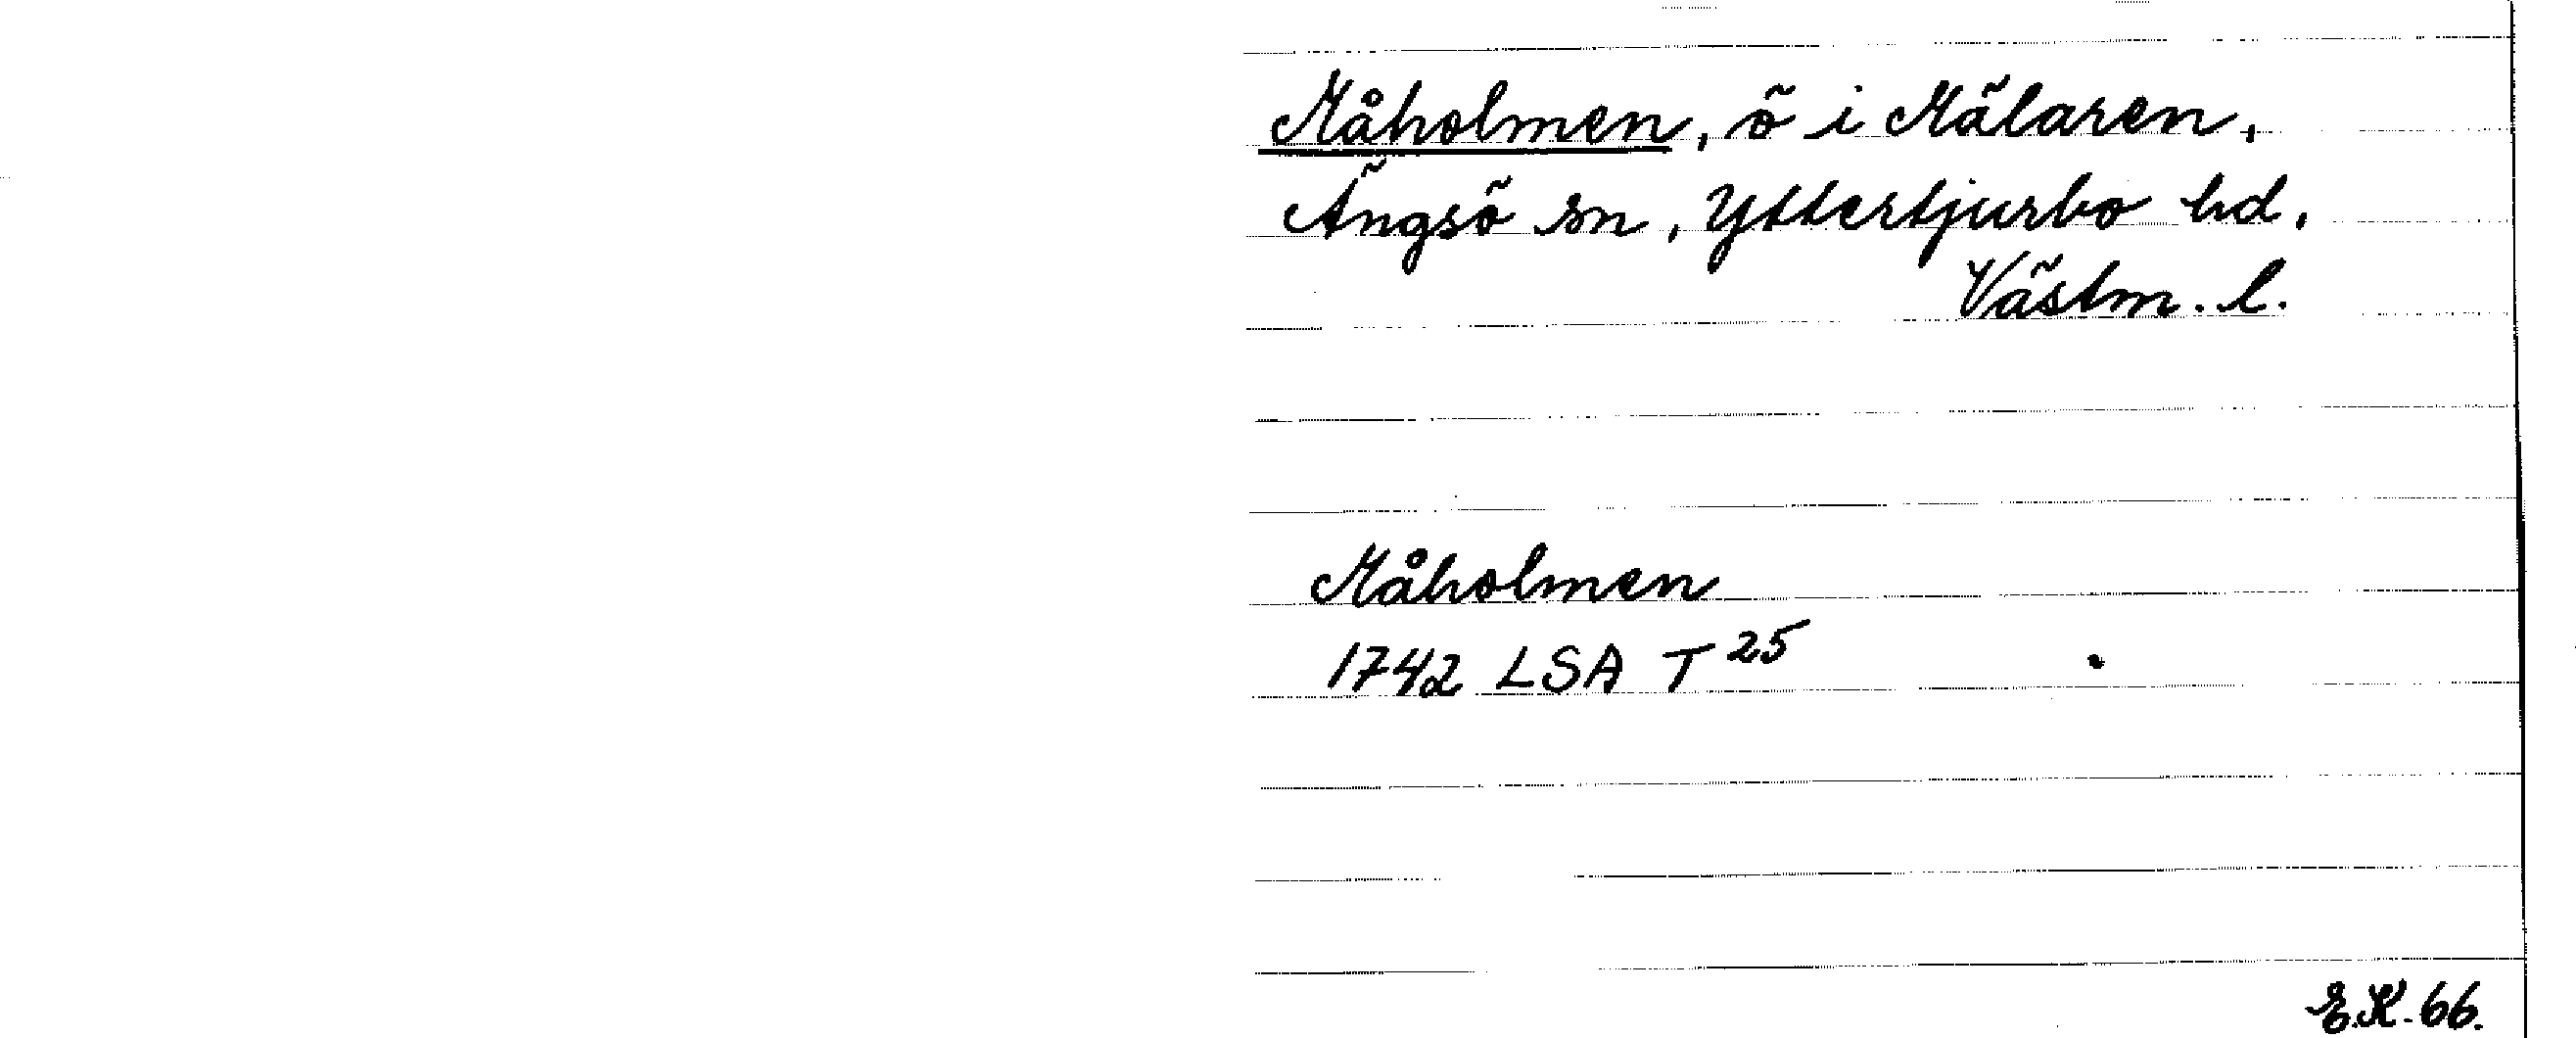 Måholmen, ö i Mälaren,
Ängsö sn, Yttertjurbo hd,
Västm. l.
Måholmen
1742 LSA T 25
E.K. 66.